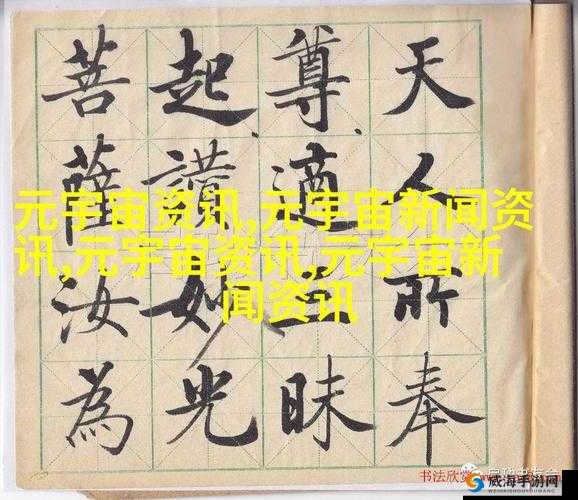 天人所奉
尊適三昧
起讚妙光
菩薩汝為
元宇宙资讯,元宇宙新闻资
讯,元宇宙资讯,元宇宙新
闻资讯
书法欣赏
威海手游网